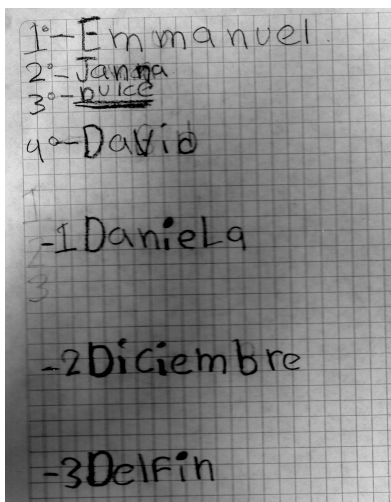 1°-Emmanuel
2°-Janna
3°-Dulce
4°-David
1
-1DanieLa
2
3
-2Diciembre
-3DelFin